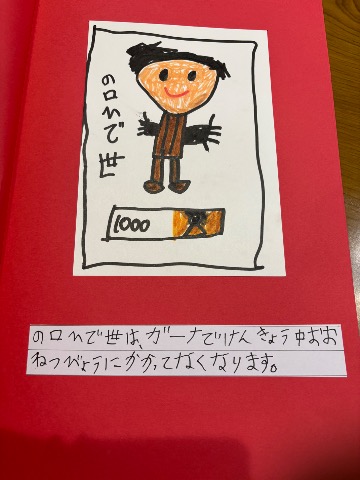 のロんで世
1000
のロんで世は、ガーナでけんきょう中おお
ねつびょうにかかってなくなります。